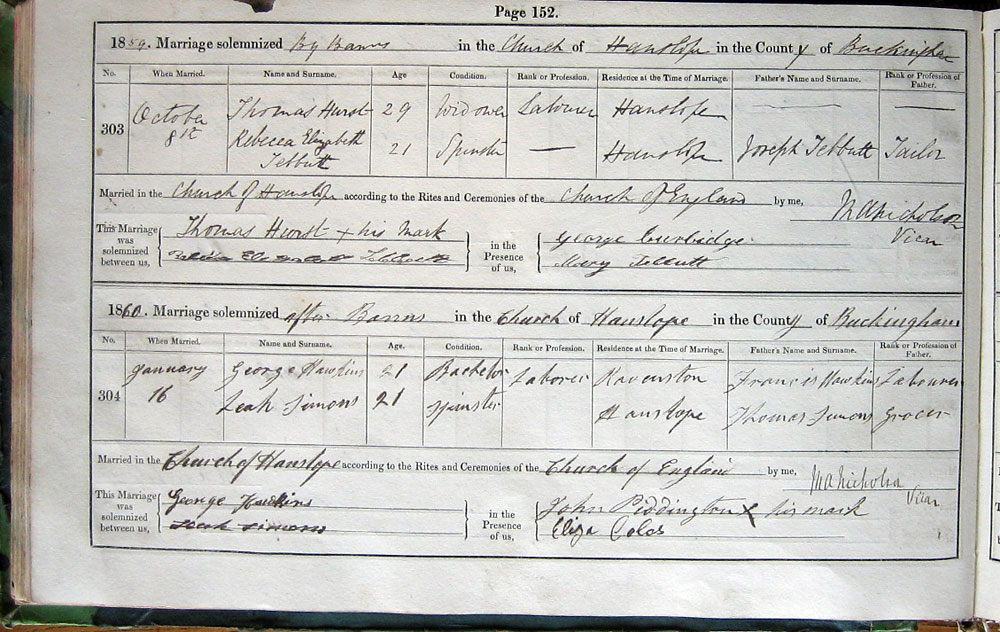 Page 152.
1859. Marriage solemnized By Banns in the Church of Hanslope in the County of Buckingham
No. When Married. Name and Surname. Age Condition. Rank or Profession. Residence at the Time of Marriage. Father's Name and Surname. Rank or Profession of Father.
303 October 8th Thomas Hurst 29 Widower Labourer Hanslope — —
Rebecca Elizabeth Tebbutt 21 Spinster — Hanslope Joseph Tebbutt Tailor
Married in the Church of Hanslope according to the Rites and Ceremonies of the Church of England by me, M A Nicholson Vicar
This Marriage was solemnized between us, Thomas Hurst x his Mark
Rebecca Elizabeth Tebbutt
in the Presence of us, George Curbidge
Mary Tebbutt
1860. Marriage solemnized after Banns in the Church of Hanslope in the County of Buckingham
No. When Married. Name and Surname. Age. Condition. Rank or Profession. Residence at the Time of Marriage. Father's Name and Surname. Rank or Profession of Father.
304 January 16 George Hawkins 21 Bachelor Laborer Ravenston Francis Hawkins Labourer
Leah Simons 21 Spinster Hanslope Thomas Simons Grocer
Married in the Church of Hanslope according to the Rites and Ceremonies of the Church of England by me, M A Nicholson Vicar
This Marriage was solemnized between us, George Hawkins
Leah Simons
in the Presence of us, John Piddington x his mark
Eliza Coles